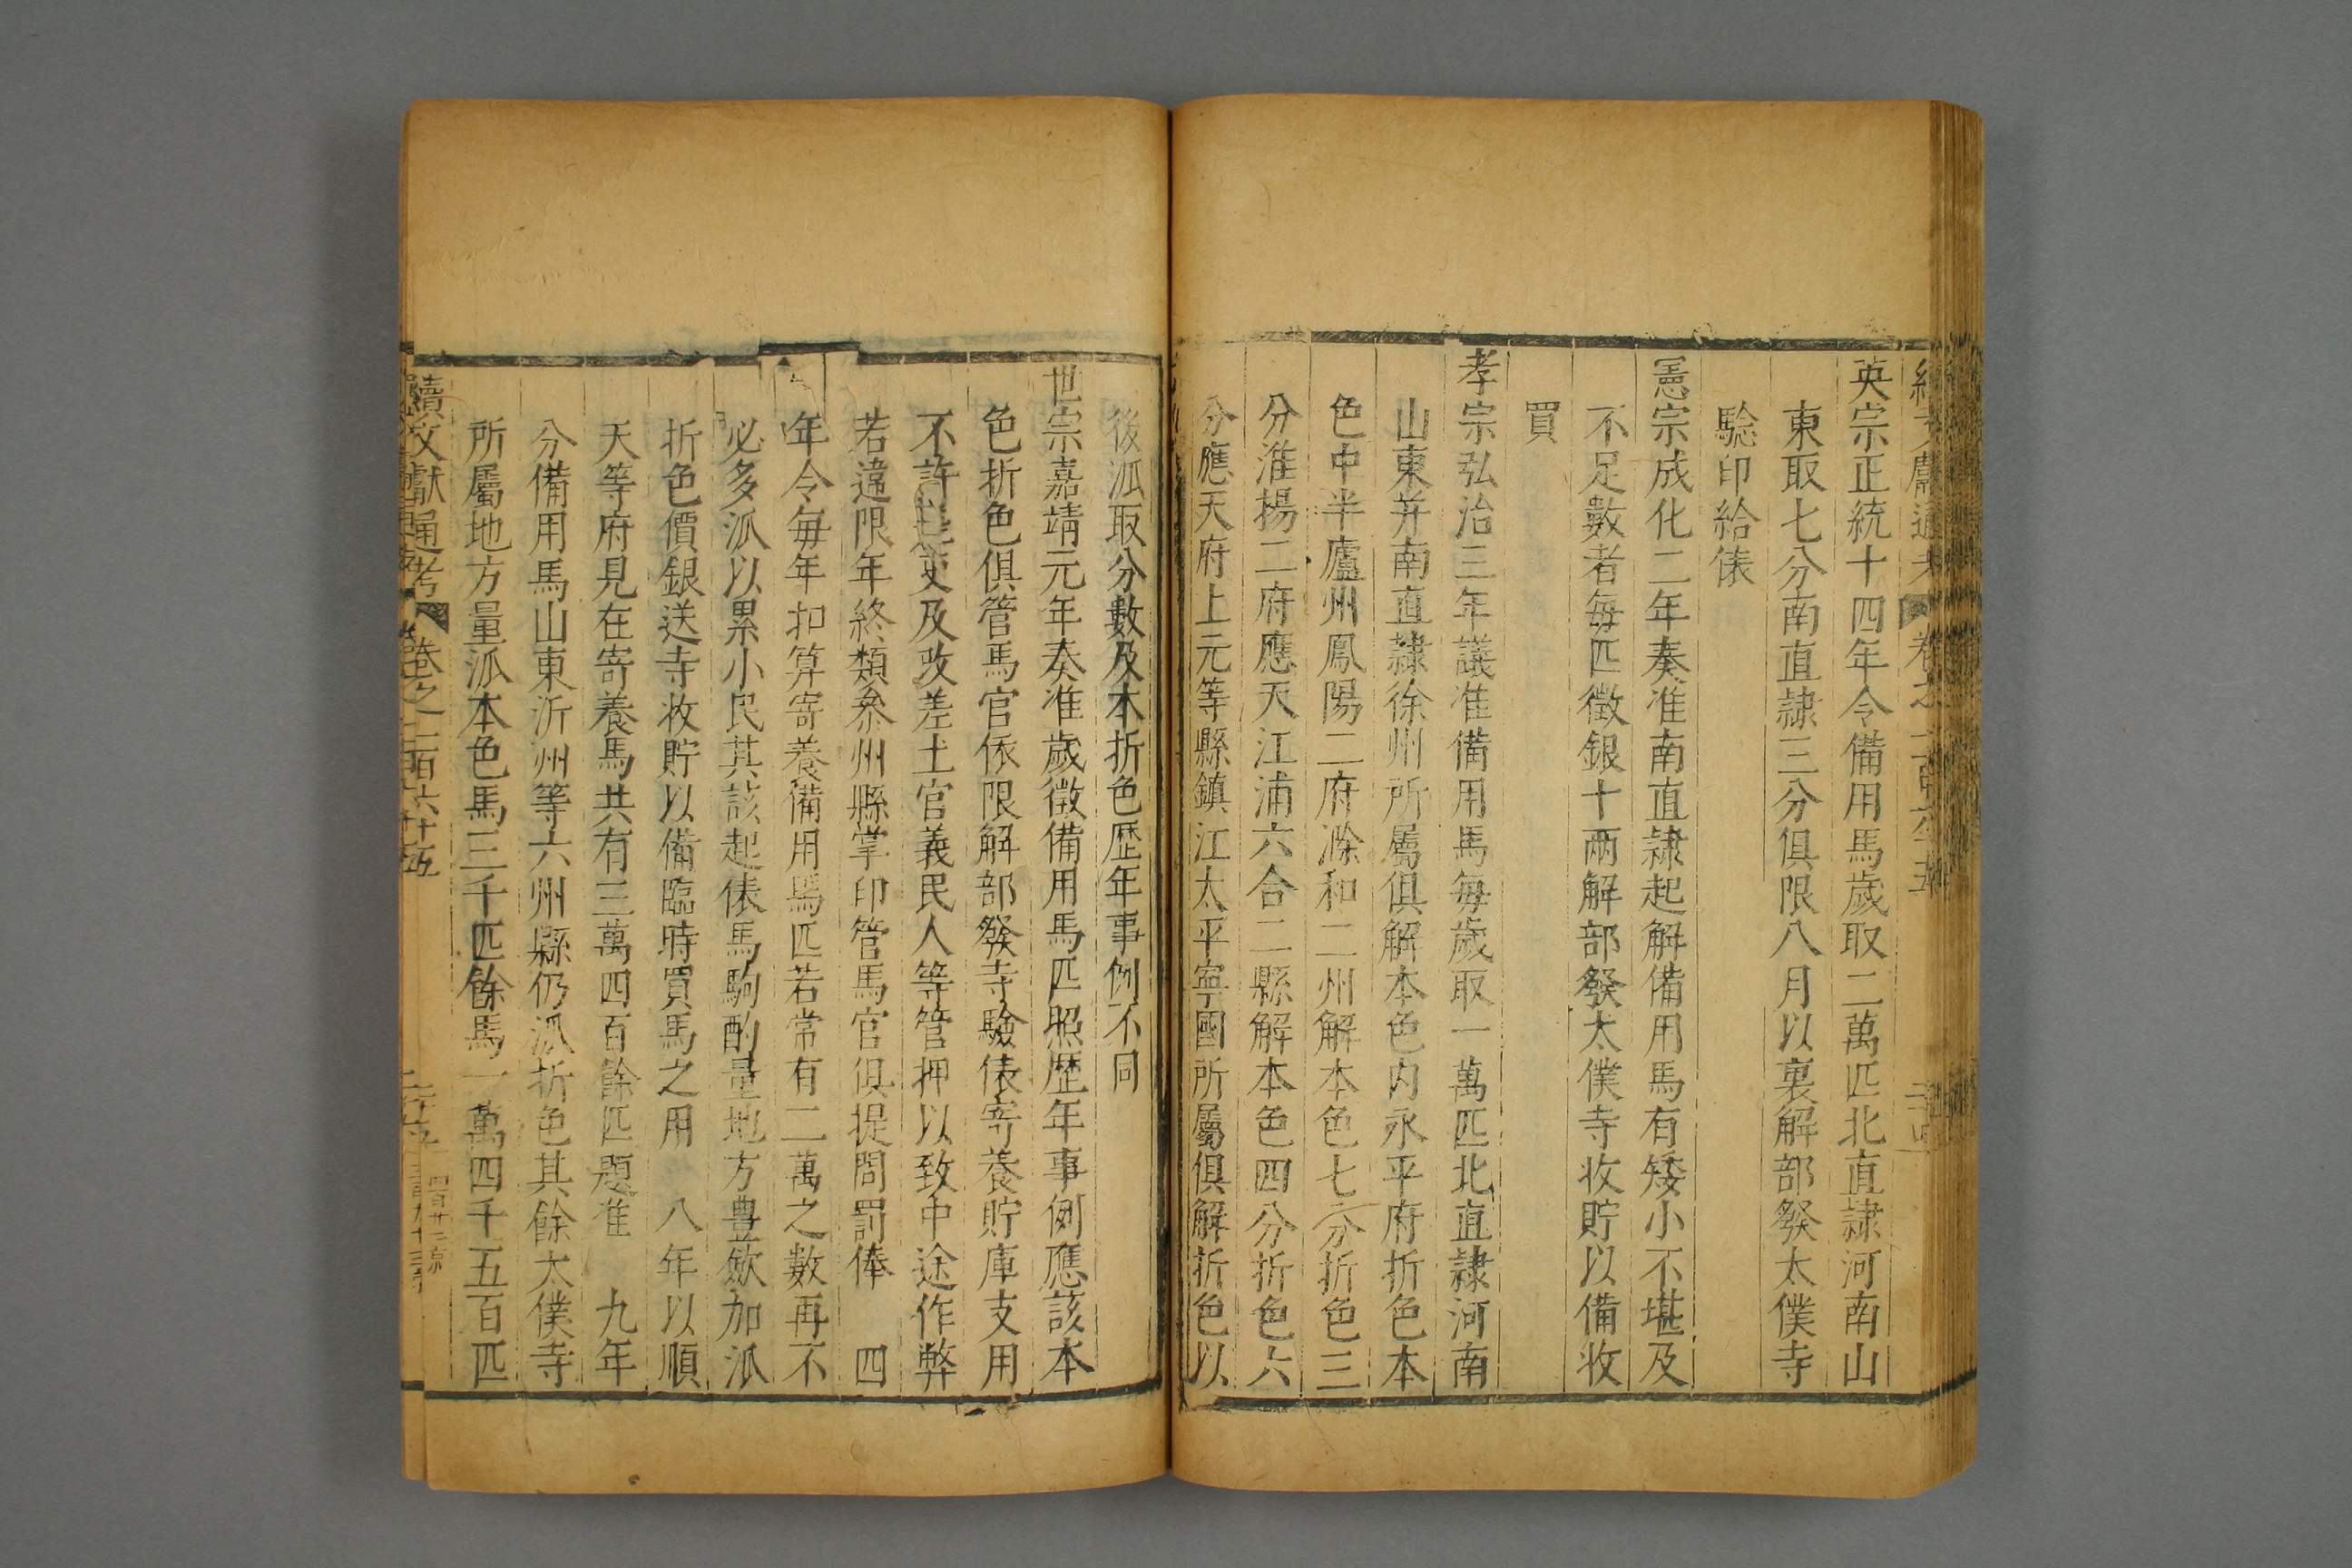 英宗正統十四年令備用馬歲取二萬匹北直隷河南山
東取七分南直隷三分俱限八月以裏解部發太僕寺
騐印給俵
憲宗成化二年奏准南直隷起解備用馬有矮小不堪及
不足數者毎匹徵銀十兩解部發太僕寺收貯以備收
買
孝宗弘治三年議准備用馬毎歲取一萬匹北直隷河南
山東并南直隷徐州所屬俱解本色内永平府折色本
色中半廬州鳳陽二府滁和二州解本色七分折色三
分淮揚二府應天江浦六合二縣解本色四分折色六
分應天府上元等縣鎮江太平寧國所屬俱解折色以
後泒取分數及本折色歴年事例不同
世宗嘉靖元年奏准歲徵備用馬匹照歴年事例應該本
色折色俱管馬官依限解部發寺驗俵寄養貯庫支用
不許 及改差土官義民人等管押以致中途作弊
若違限年終類叅州縣掌印管馬官俱提問罰俸 四
年令毎年扣算寄養備用馬匹若常有二萬之數再不
必多泒以累小民其該起俵馬駒酌量地方豊歉加泒
折色價銀送寺收貯以備臨時買馬之用 八年以順
天等府見在寄養馬共有三萬四百餘匹題准 九年
分備用馬山東沂州等六州縣仍泒折色其餘太僕寺
所屬地方量泒本色馬三千匹餘馬一萬四千五百匹
續文獻通考 卷之一百六十五